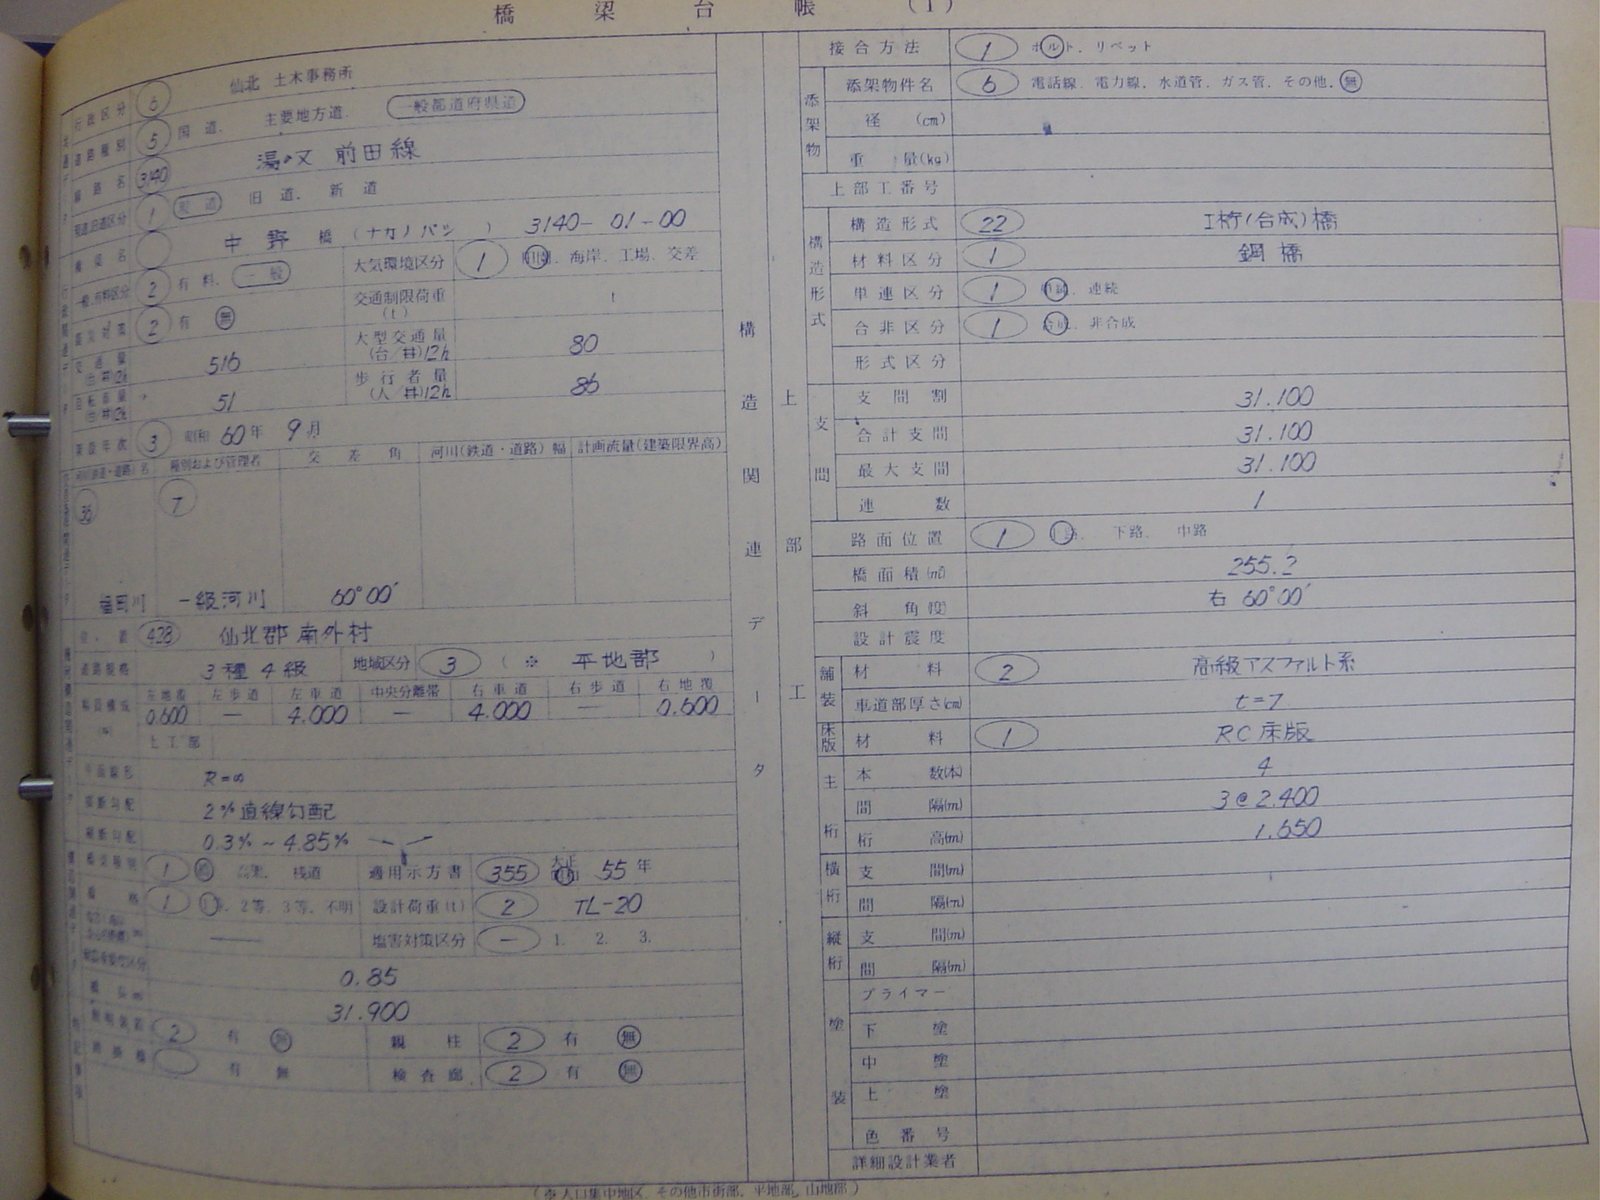 橋梁台帳 (1)
行政区分 6 仙北 土木事務所
道路種別 5 国道. 主要地方道. 一般都道府県道
路線名 3140 湯の又 前田線
現道旧道区分 1 現道 旧道. 新道
橋梁名 中野橋 (ナカノバシ) 3140-01-00
一般有料区分 2 有料. 一般 大気環境区分 1 海岸. 工場. 交差
2 有 無 交通制限荷重(t) t
交通量 (台/日)12h 516 大型交通量 (台/日)12h 80
自転車量 (台/日)12h 51 歩行者量 (人/日)12h 86
架設年次 3 昭和 60年 9月
河川(鉄道・道路)名 種別および管理者 交差角 河川(鉄道・道路)幅 計画流量(建築限界高)
36 7
一級河川 60°00′
428 仙北郡南外村
道路規格 3種4級 地域区分 3 (※ 平地部)
左地覆 左歩道 左車道 中央分離帯 右車道 右歩道 右地覆
0.600 — 4.000 — 4.000 — 0.600
土工部
平面線形 R=∞
横断勾配 2% 直線勾配
縦断勾配 0.3% ~ 4.85%
橋梁種別 1 橋 高架. 桟道 適用示方書 355 大正 昭和 55年
橋格 1 1等. 2等. 3等. 不明 設計荷重(t) 2 TL-20
塩害対策区分 — 1. 2. 3.
0.85
橋長(m) 31.900
照明装置 2 有 無 親柱 2 有 無
有 無 検査廊 2 有 無
構造関連データ
上部工
接合方法 1 ボルト. リベット
添架物
添架物件名 6 電話線. 電力線. 水道管. ガス管. その他. 無
径 (cm)
重量(kg)
上部工番号
構造形式
構造形式 22 I桁(合成)橋
材料区分 1 鋼橋
単連区分 1 単純. 連続
合非区分 1 合成. 非合成
形式区分
支間
支間割 31.100
合計支間 31.100
最大支間 31.100
連数 1
路面位置 1 上路. 下路. 中路
橋面積(㎡) 255.2
斜角(度) 右 60°00′
設計震度
舗装
材料 2 高級アスファルト系
車道部厚さ(cm) t=7
床版 材料 1 RC床版
主桁
本数(本) 4
間隔(m) 3@2.400
桁高(m) 1.650
横桁
支間(m)
間隔(m)
縦桁
支間(m)
間隔(m)
塗装
プライマー
下塗
中塗
上塗
色番号
詳細設計業者
(※人口集中地区. その他市街部. 平地部. 山地部)